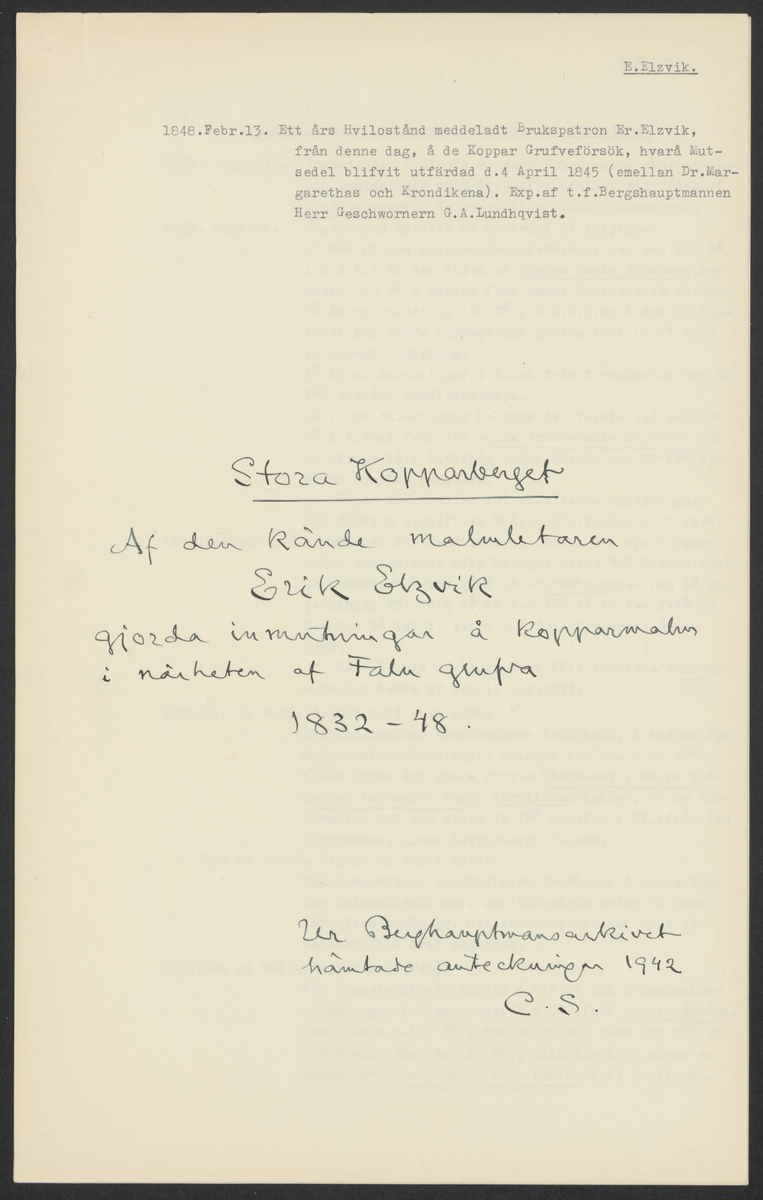 E.Elzvik.
1848.Febr.13. Ett års Hvilostånd meddeladt Brukspatron Er.Elzvik,
från denne dag, å de Koppar Grufveförsök, hvarå Mut-
sedel blifvit utfärdad d.4 April 1845 (emellan Dr.Mar-
garethas och Krondikena). Exp.af t.f.Bergshauptmannen
Herr Geschwornern G.A.Lundhqvist.
Stora Kopparberget
Af den kände malmletaren
Erik Elzvik
gjorda inmutningar å kopparmalm
i närheten af Falu grufva
1832-48.
Ur Berghauptmansarkivet
hämtade anteckningar 1942
C.S.